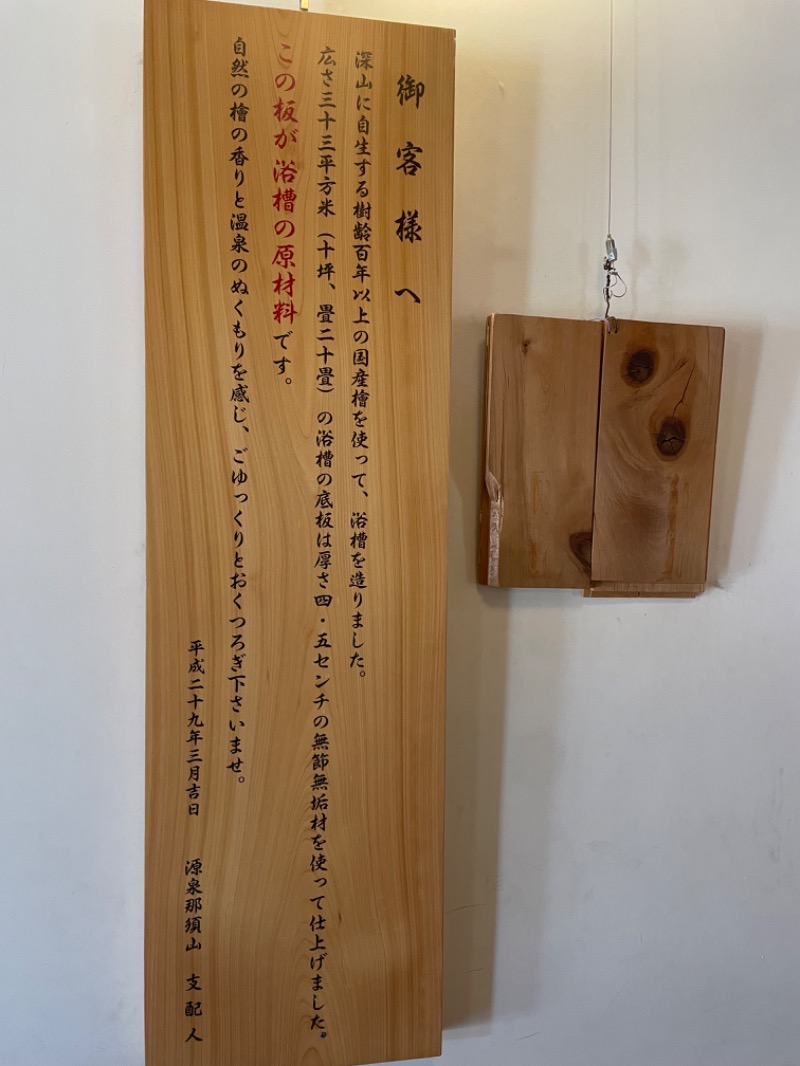 御客様へ
深山に自生する樹齢百年以上の国産檜を使って、浴槽を造りました。
広さ三十三平方米（十坪、畳二十畳）の浴槽の底板は厚さ四・五センチの無節無垢材を使って仕上げました。
この板が浴槽の原材料です。
自然の檜の香りと温泉のぬくもりを感じ、ごゆっくりとおくつろぎ下さいませ。
平成二十九年三月吉日　源泉那須山　支配人